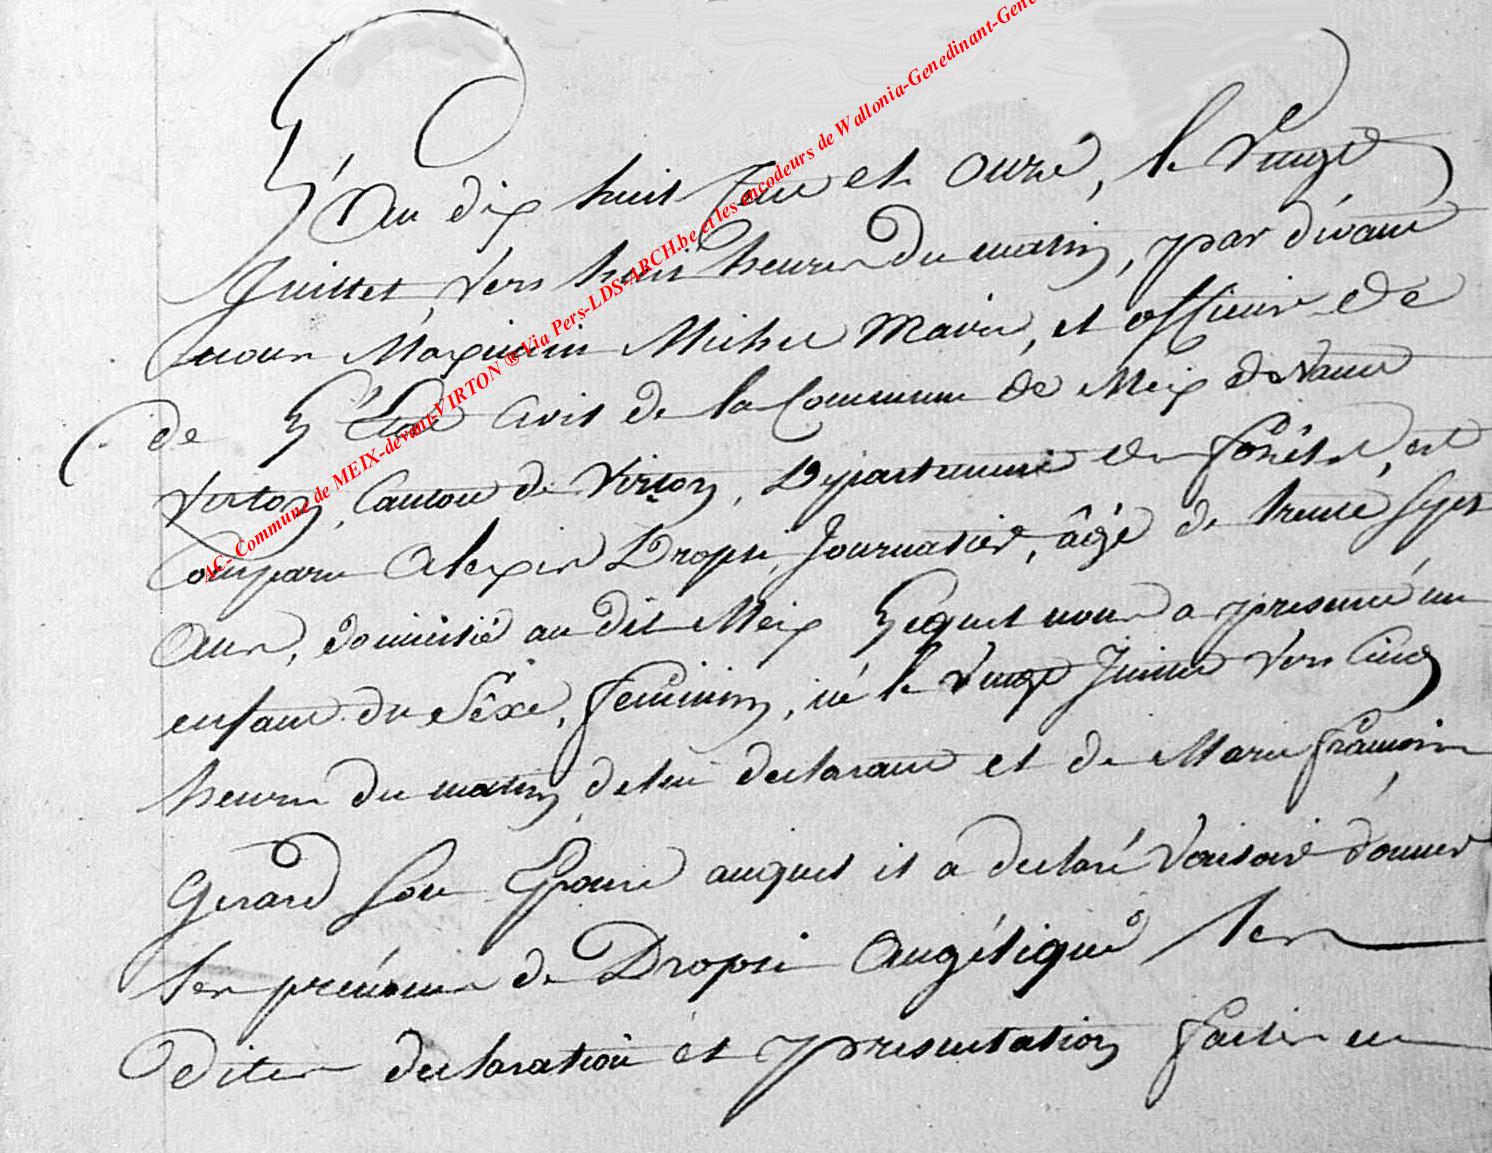 L'An dix huit Cent et onze, le Vingt
Juillet, vers huit heures du matin, par dévant
nous Maximin Michel Maire, et officier de
de L'État Civil de la Commune de Meix devant
Virton, Canton de Virton, Département des forêts, est
Comparu Alexis Dropsi, Journalier, âgé de trente sept
Ans, domicilié au dit Meix Lequel nous a présenté un
enfant du Sêxe, feminin, né le Vingt Juillet vers Cinq
heures du matin de lui déclarant et de Marie françoise
Gerard son Epouse auquel il a declaré Vouloir donner
les prénoms de Dropsi Angélique les
dites declaration et presentation faites en
AC- Commune de MEIX-devant-VIRTON ® Via Pers-LDS-ARCH.be et les encodeurs de Wallonia-Genedinant-Gene